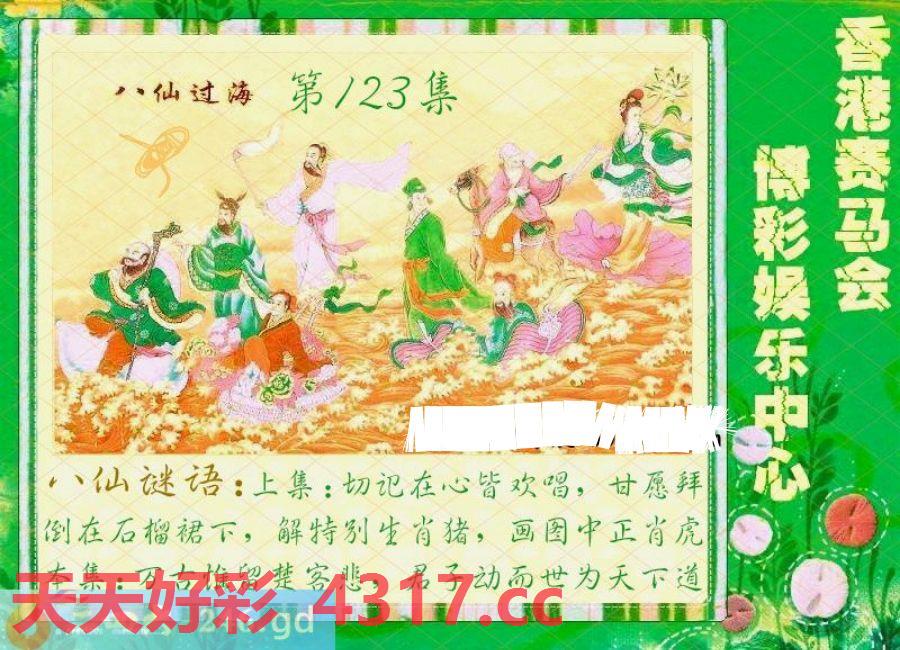 香港赛马会
博彩娱乐中心
八仙过海 第123集
八仙谜语：上集：切记在心皆欢唱，甘愿拜
倒在石榴裙下，解特别生肖猪，画图中正肖虎
本集：万古惟留楚客悲，君子动而世为天下道
天天好彩 4317.cc